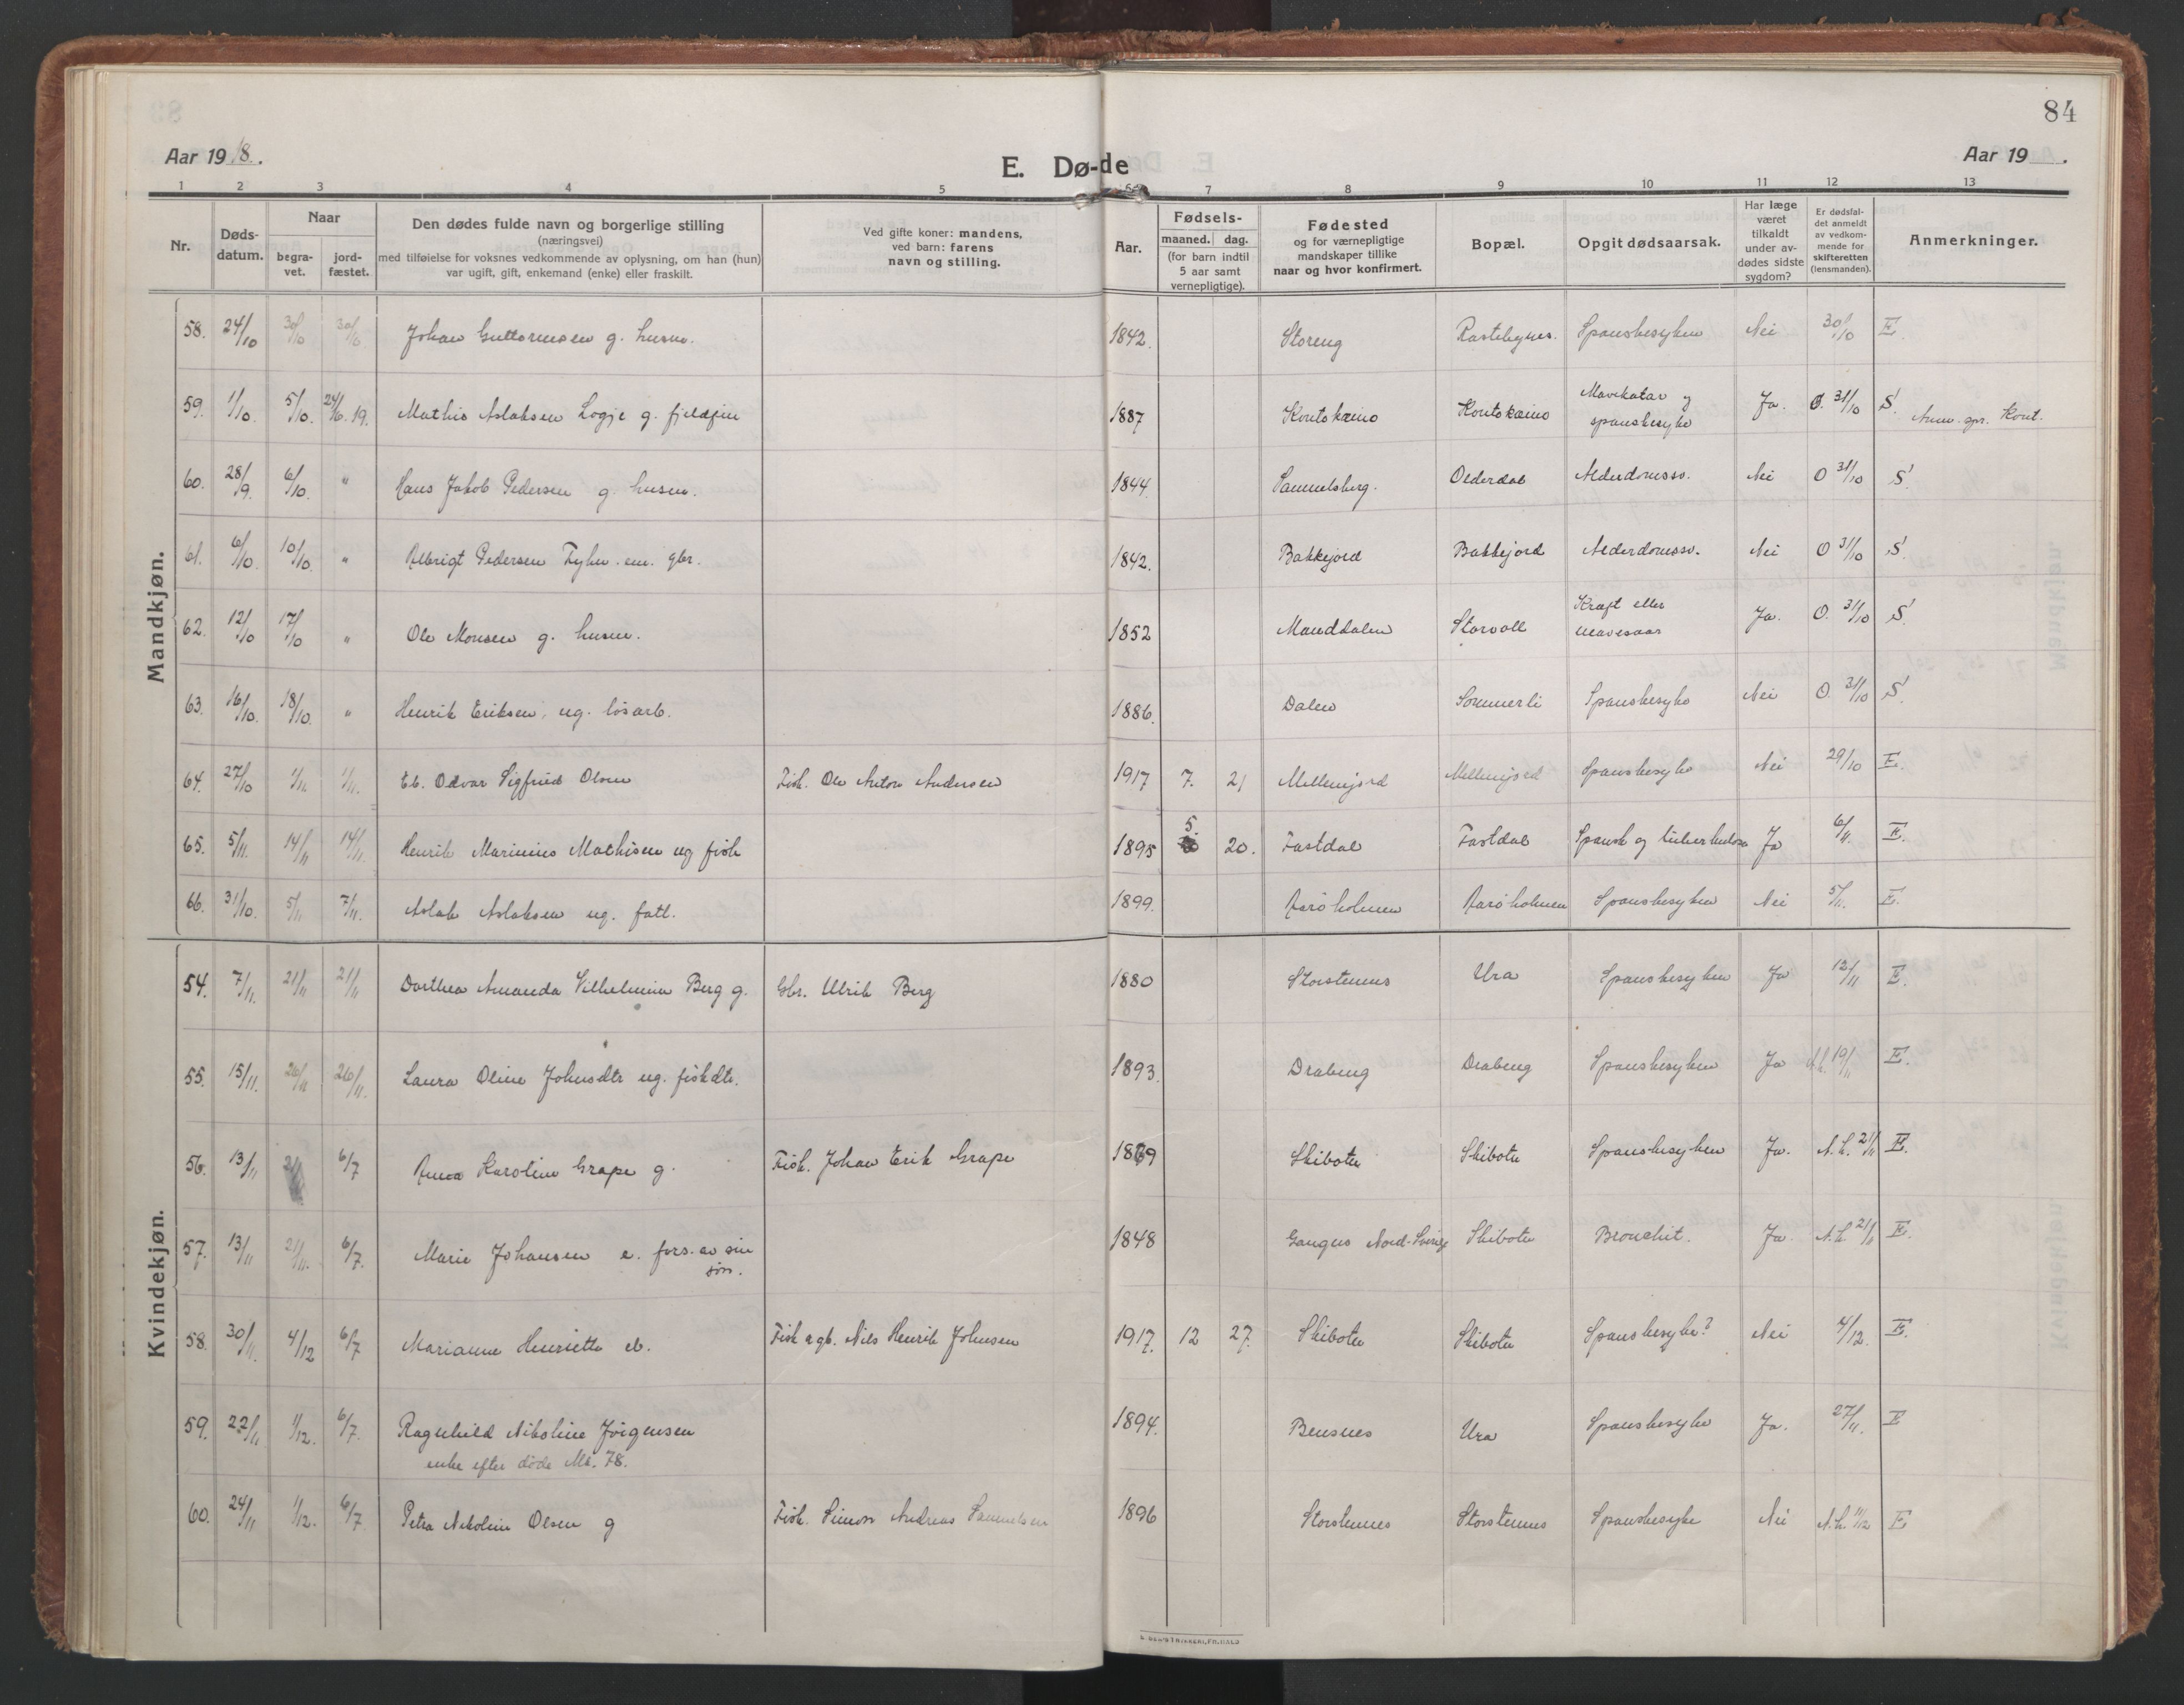 84
Aar 1918.
E. Dø-de
Aar 19 .
1 2 3 4 5 6 7 8 9 10 11 12 13
Nr.
Døds-
datum.
Naar
begra-
vet.
jord-
fæstet.
Den dødes fulde navn og borgerlige stilling
(næringsvei)
med tilføielse for voksnes vedkommende av oplysning, om han (hun)
var ugift, gift, enkemand (enke) eller fraskilt.
Ved gifte koner: mandens,
ved barn: farens
navn og stilling.
Aar.
Fødsels-
maaned. dag.
(for barn indtil
5 aar samt
vernepligtige).
Fødested
og for værnepligtige
mandskaper tillike
naar og hvor konfirmert.
Bopæl.
Opgit dødsaarsak.
Har læge
været
tilkaldt
under av-
dødes sidste
sygdom?
Er dødsfal-
det anmeldt
av vedkom-
mende for
skifteretten
(lensmanden).
Anmerkninger.
Mandkjøn.
58. 24/10 30/10 30/10 Johan Guttormsen g. husm. 1842. Storeng Rastebynes. Spanskesyken Nei 30/10 E.
59. 1/10. 5/10. 24/6. 19. Mathis Aslaksen Logje g. fjeldfin 1887 Koutokæino Koutokæino Mavekatar og
spanskesyke Ja. O. 31/10 S. Anm. spr. Kout.
60. 28/9. 6/10. " Hans Jakob Pedersen g. husm. 1844. Samuelsberg. Olderdal Alderdomssv. Nei O 31/10 S.
61. 6/10. 10/10. " Albrigt Pedersen Fyhn. em. gbr. 1842. Bakkejord Bakkejord Alderdomssv. Nei O 31/10 S.
62. 12/10 17/10 " Ole Monsen g. husm. 1852 Manddalen Storvoll Kræft eller
mavesaar Ja. O. 31/10 S.
63. 16/10. 18/10. " Henrik Eriksen, ug. løsarb. 1886. Dalen Sommerli Spanskesyke Nei O. 31/10 S.
64. 27/10 1/11 1/11. Eb. Odvar Sigfried Olsen Fisk. Ole Anton Andersen 1917 7. 21 Mellemjord Mellemjord Spanskesyke Nei 29/10 E.
65. 5/11. 14/11 14/11. Henrik Marinius Mathisen ug fisk 1895 5. 20. Fastdal Fastdal Spansk og tuberkulose Ja 6/11. E.
66. 31/10. 5/11 7/11. Aslak Aslaksen ug. fatl. 1899. Aarøholmen Aarøholmen Spanskesyken Nei 5/11. E.
Kvindekjøn.
54. 7/11. 21/11 21/11 Dorthea Amanda Vilhelmina Berg g. Gbr. Ulrik Berg 1880 Storstennes Ura Spanskesyken Ja 12/11 E.
55. 15/11. 26/11 26/11. Laura Oline Johnsdtr ug. fiskdtr. 1893. Drabeng Drabeng Spanskesyken Ja A.h. 19/11 E.
56. 13/11 6/7 Anna Karoline Grape g. Fisk. Johan Erik Grape 1869 Skibotn Skibotn Spanskesyken Ja. A.h. 21/11 E.
57. 13/11 21/11. 6/7. Marie Johansen e. fors. av sin
søn. 1848 Nord-Sverige Skibotn Bronchit. Ja. A.h. 21/11 E.
58. 30/11. 4/12 6/7 Marianne Henriette eb. Fisk a gb. Nils Henrik Johnsen 1917. 12 27. Skibotn Skibotn Spanskesyke? Nei 4/12. E.
59. 22/11 1/12. 6/7. Ragnhild Nikoline Jørgensen
enke efter døde Mk. 78. 1894. Bensnes Ura Spanskesyke Ja. 27/11. E
60. 24/11 1/12. 6/7 Petra Nikoline Olsen g Fisk. Simon Andreas Samuelsen 1896 Storstennes Storstennes Spanskesyke Nei A.h. 11/12 E